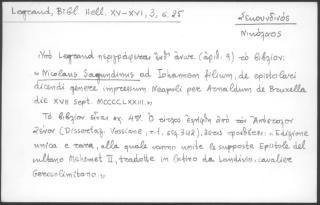 Legrand, Bibl. Hell. XV-XVI, 3, σ. 25
Σεκουνδινός
Νικόλαος
Ὑπὸ Legrand περιγράφεται ἐνθ' ἀνωτ. (ἀριθ. 9) τὸ βιβλίον:
« Nicolaus Sagundinus ad Iohannem filium, de epistolari
dicendi genere impressum Neapoli per Arnaldum de Bruxella
die XVII Sept. MCCCCLXXIII. »
Τὸ βιβλίον εἶναι σχ. 4ον. Ὁ τίτλος ἐλήφθη ἀπὸ τὸν Ἀπόστολον
Ζένον (Dissertaz. Vossiane, τ. 1, σελ. 342), ὅστις προσθέτει: « Edizione
unica e rara, alla quale vanno unite le supposte Epistole del
sultano Mehemet II, tradotte in latino da Landivio, cavaliere
Gerosolimitano ».